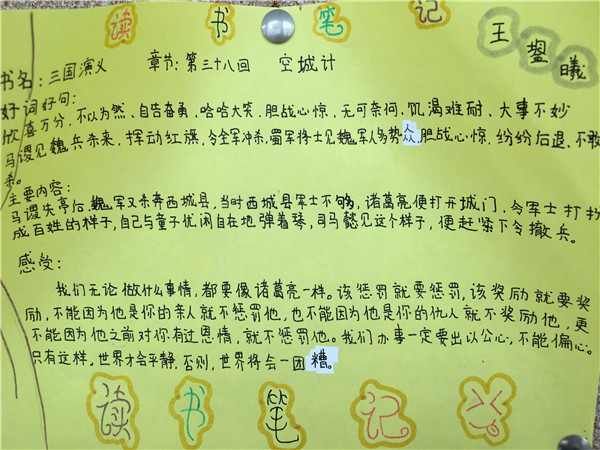 读书笔记
王 曌曦
书名:三国演义 章节:第三十八回 空城计
好词好句:
欣喜万分、不以为然、自告奋勇、哈哈大笑、胆战心惊、无可奈何、饥渴难耐、大事不妙
马谡见魏兵杀来,挥动红旗,令全军冲杀,蜀军将士见魏军人多势众,胆战心惊,纷纷后退,不敢
杀。
主要内容:
马谡失亭后,魏军又杀奔西城县,当时西城县军士不够,诸葛亮便打开城门,令军士打扮
成百姓的样子,自己与童子优闲自在地弹着琴,司马懿见这个样子,便赶紧下令撤兵。
感受:
我们无论做什么事情,都要像诸葛亮一样。该惩罚就要惩罚,该奖励就要奖
励,不能因为他是你的亲人就不惩罚他,也不能因为他是你的仇人就不奖励他,更
不能因为他之前对你有过恩情,就不惩罚他。我们办事一定要出以公心,不能偏心。
只有这样,世界才会平静,否则,世界将会一团糟。
读书笔记